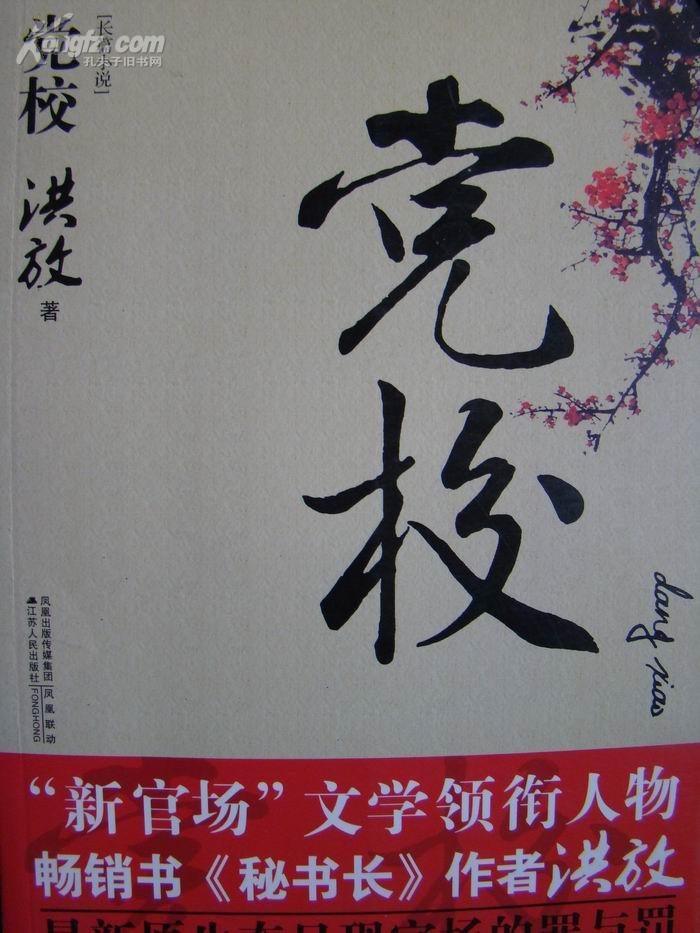 Kongfz.com
孔夫子旧书网
[长篇小说]
党校
洪放
著
党校
dang xiao
凤凰出版传媒集团
江苏人民出版社
凤凰联动
FONGHONG
“新官场”文学领衔人物
畅销书《秘书长》作者洪放
最新原生态呈现官场的罪与罚